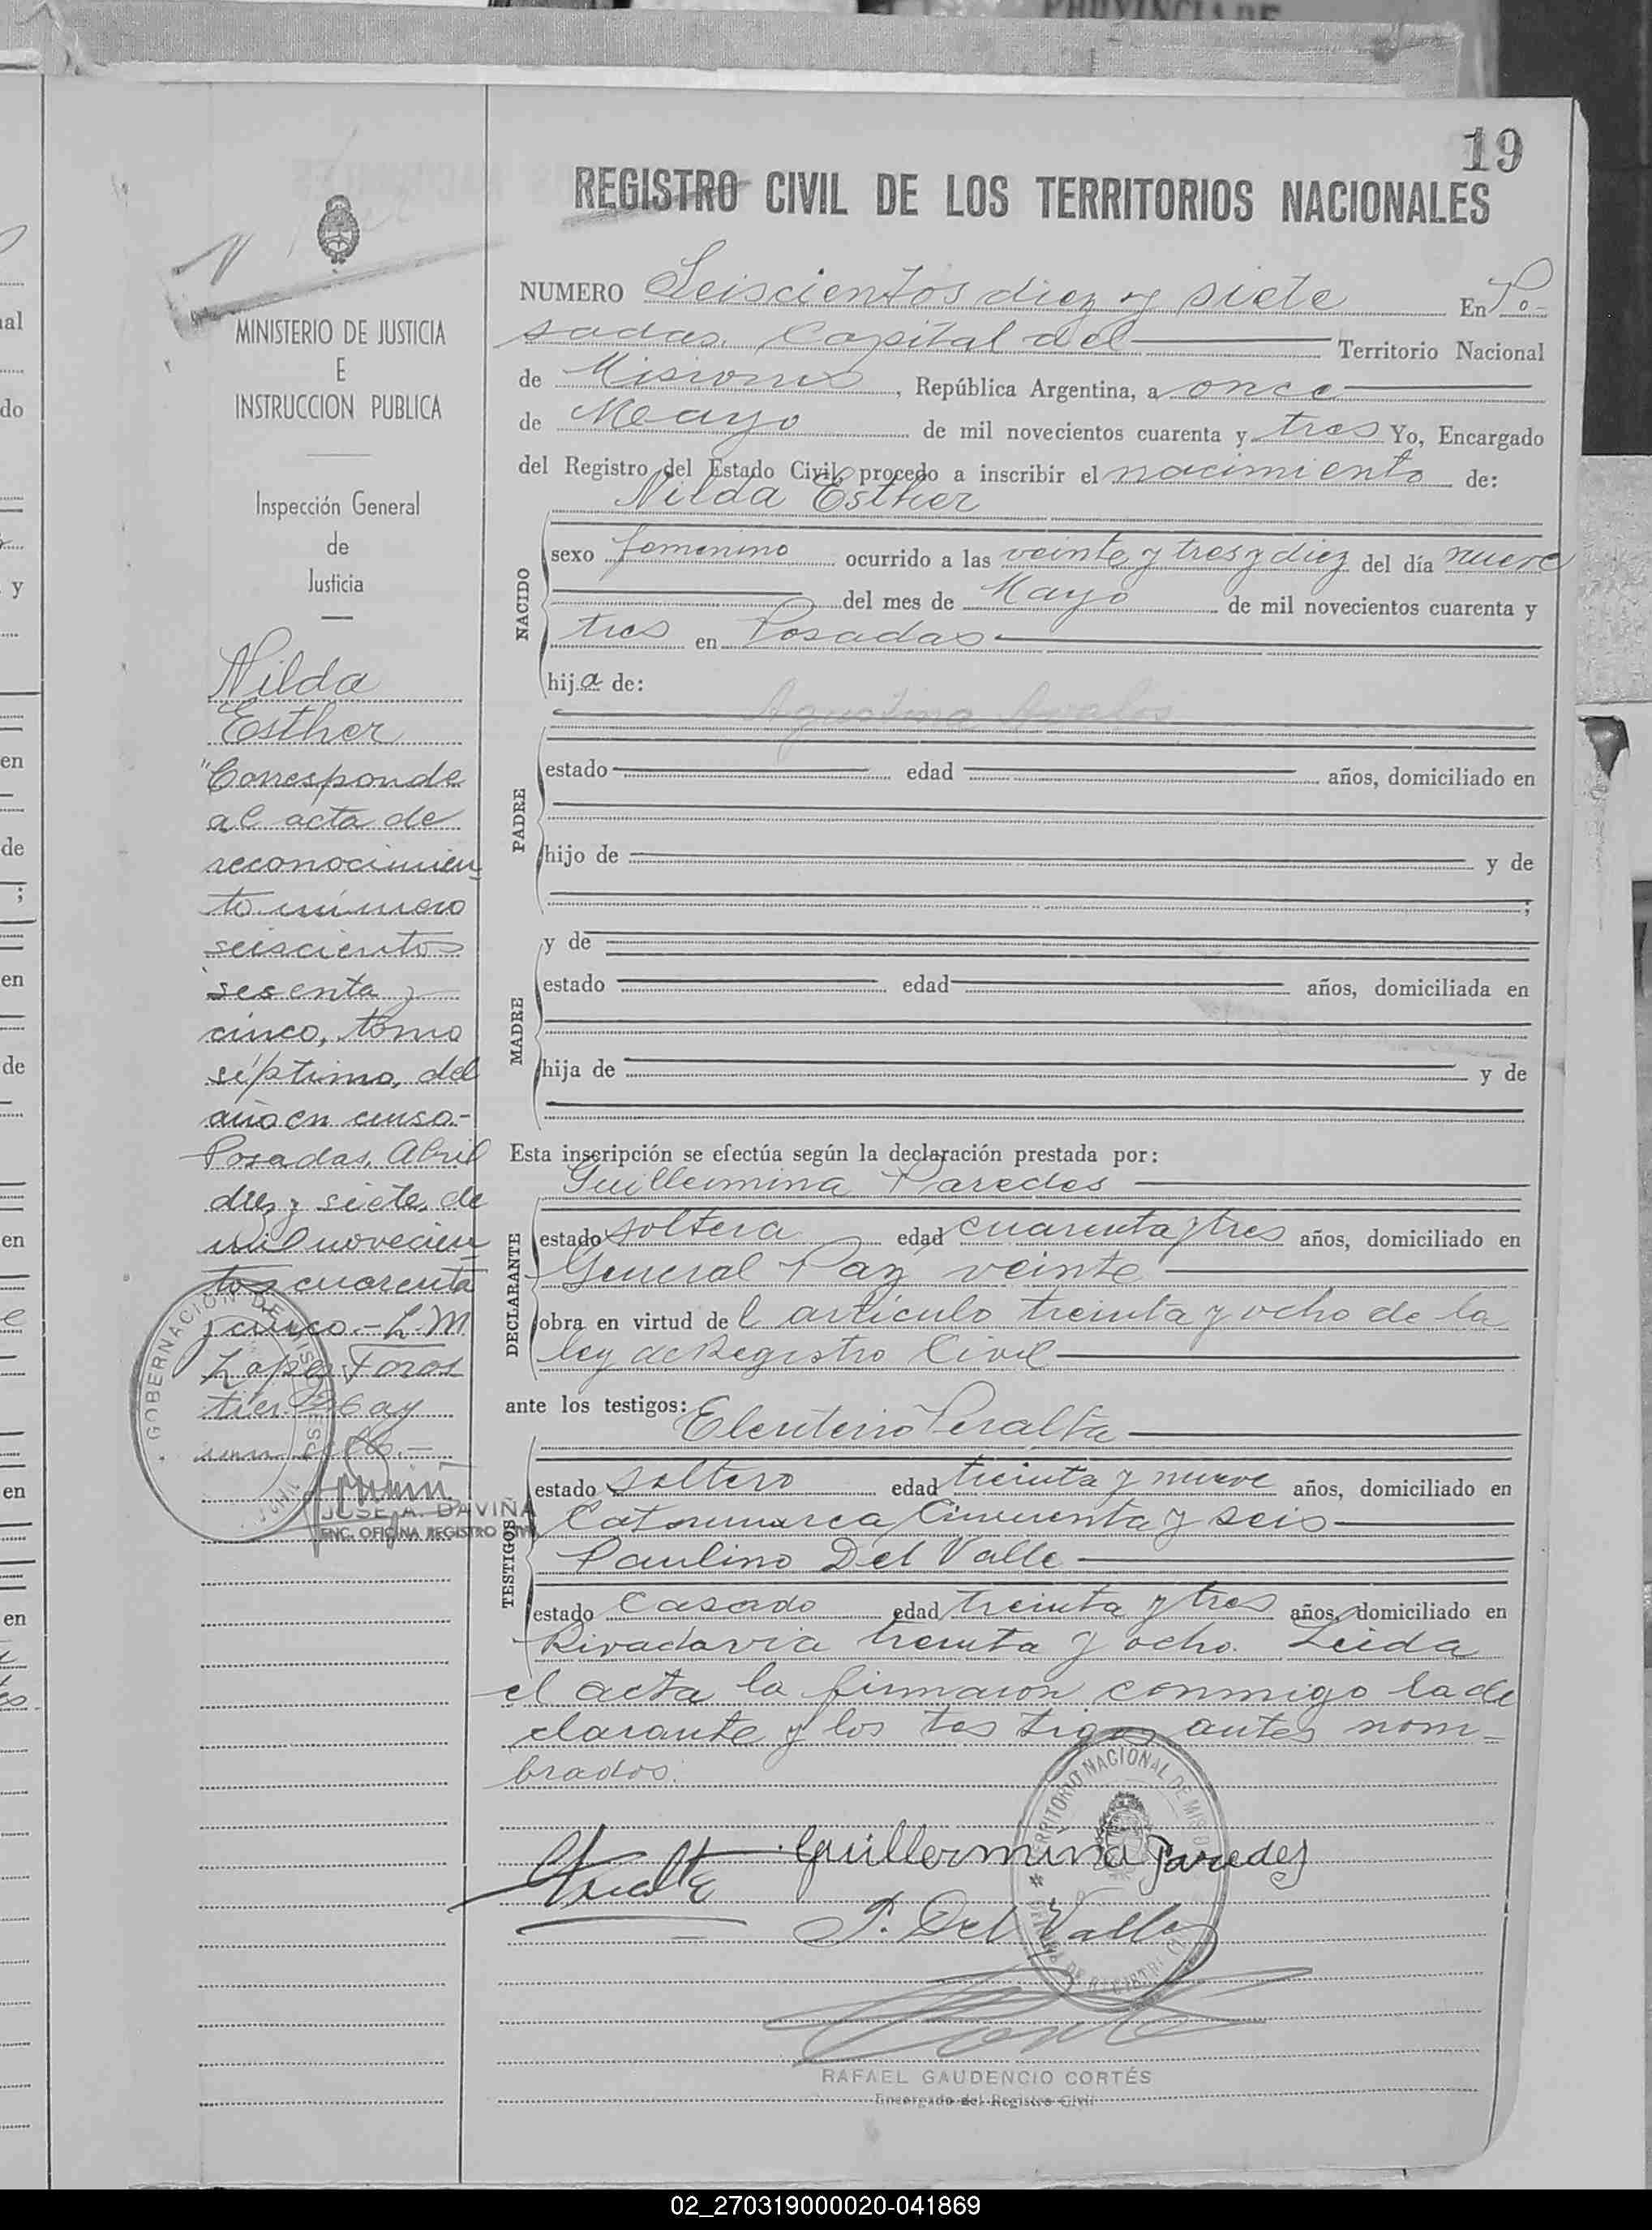 19
REGISTRO CIVIL DE LOS TERRITORIOS NACIONALES
NUMERO Seiscientos diez y siete En Po-
sadas, Capital del Territorio Nacional
de Misiones, República Argentina, a once
de Mayo de mil novecientos cuarenta y tres Yo, Encargado
del Registro del Estado Civil, procedo a inscribir el nacimiento de:
Nilda Esther
NACIDO
sexo femenino ocurrido a las veinte y tres y diez del día nueve
del mes de Mayo de mil novecientos cuarenta y
tres en Posadas
hija de:
Agustina Avalos
PADRE
estado edad años, domiciliado en
hijo de y de
;
MADRE
y de
estado edad años, domiciliada en
hija de y de
Esta inscripción se efectúa según la declaración prestada por:
Guillermina Paredes
DECLARANTE
estado soltera edad cuarenta y tres años, domiciliado en
General Paz veinte
obra en virtud del artículo treinta y ocho de la
ley de Registro Civil
ante los testigos:
Eleuterio Peralta
TESTIGOS
estado soltero edad treinta y nueve años, domiciliado en
Catamarca Cincuenta y seis
Paulino Del Valle
estado Casado edad treinta y tres años, domiciliado en
Rivadavia treinta y ocho. Leida
el acta la firmaron conmigo la de
clarante y los testigos antes nom-
brados.
Guillermina Paredes
P. Del Valle
TERRITORIO NACIONAL DE MISIONES
RAFAEL GAUDENCIO CORTÉS
Encargado del Registro Civil
MINISTERIO DE JUSTICIA
E
INSTRUCCION PUBLICA
Inspección General
de
Justicia
Nilda
Esther
"Corresponde
al acta de
reconocimien-
to número
seiscientos
sesenta y
cinco, tomo
séptimo, del
año en curso.-
Posadas, Abril
diez y siete de
mil novecien
tos cuarenta
y cinco.- L.M.
Lopez Foros
tier. Hay
un sello.-
GOBERNACION DE MISIONES
JOSE A. DAVIÑA
ENC. OFICINA REGISTRO CIVIL
02_270319000020-041869